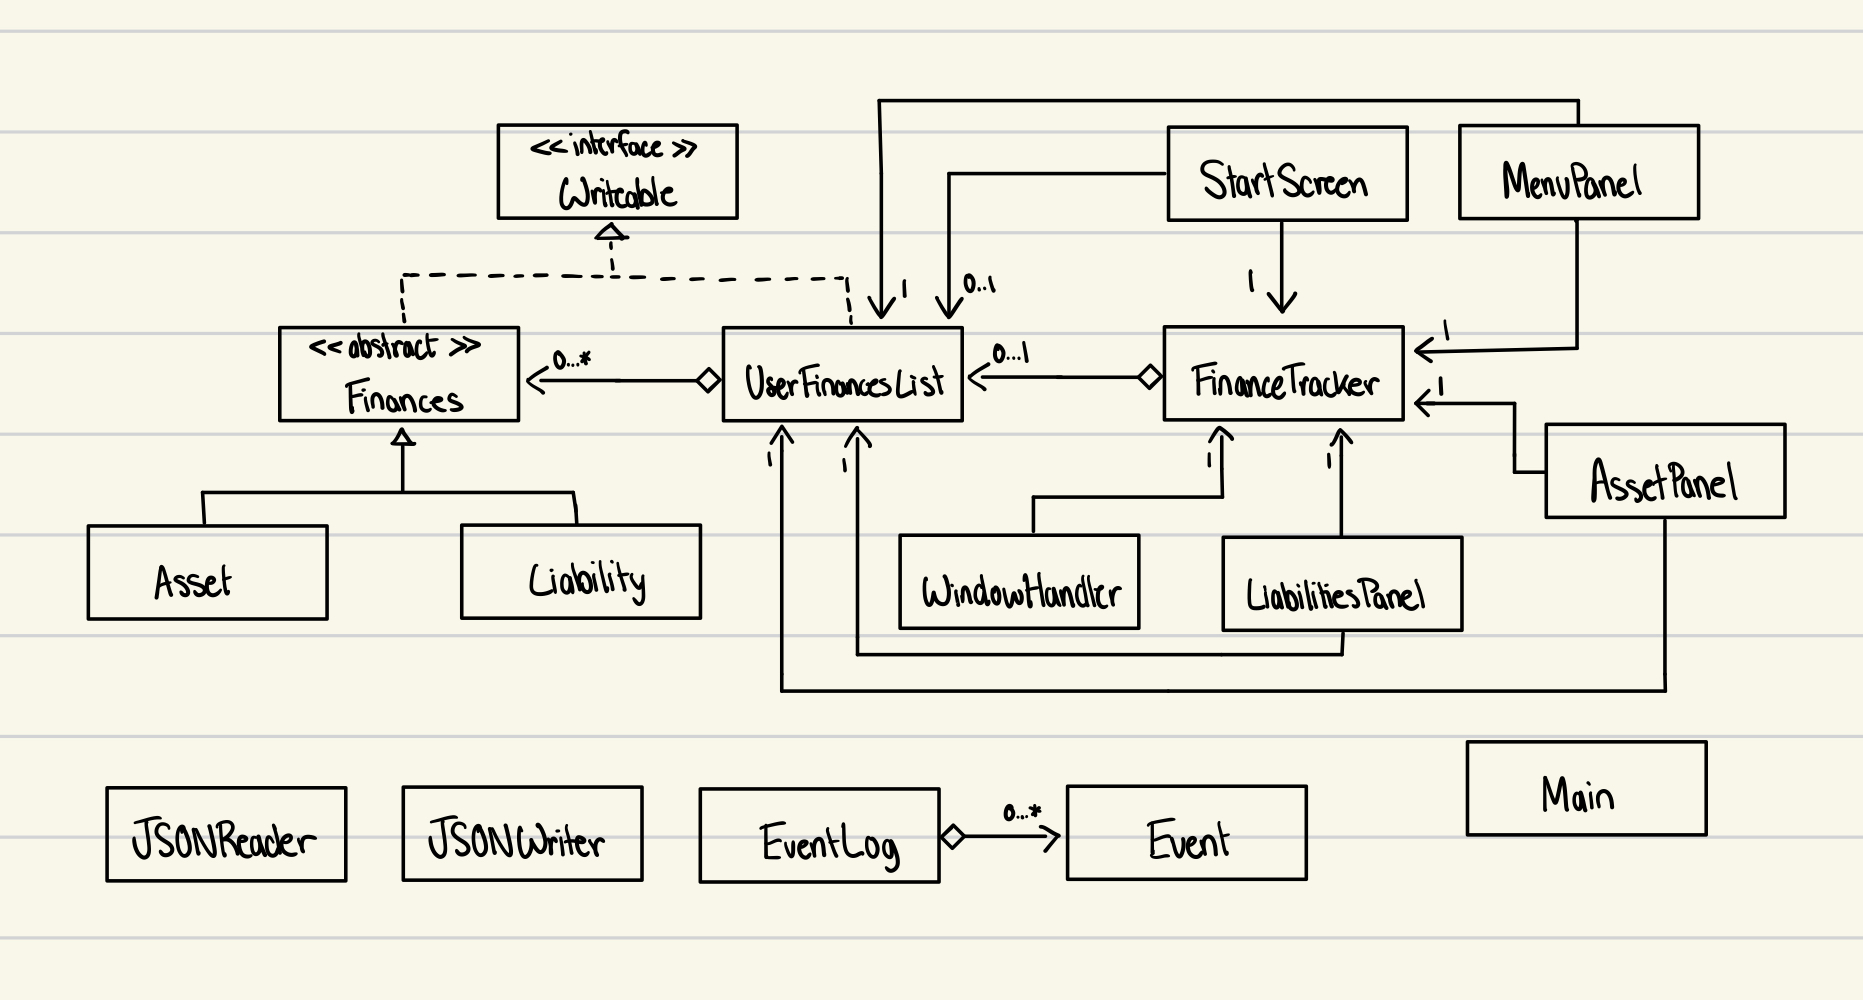 <<interface>>
Writeable
StartScreen
MenuPanel
1
0..1
1
<<abstract>>
Finances
0...*
UserFinancesList
0...1
FinanceTracker
1
1
1
1
1
1
AssetPanel
Asset
Liability
WindowHandler
LiabilitiesPanel
Main
JSONReader
JSONWriter
EventLog
0...*
Event